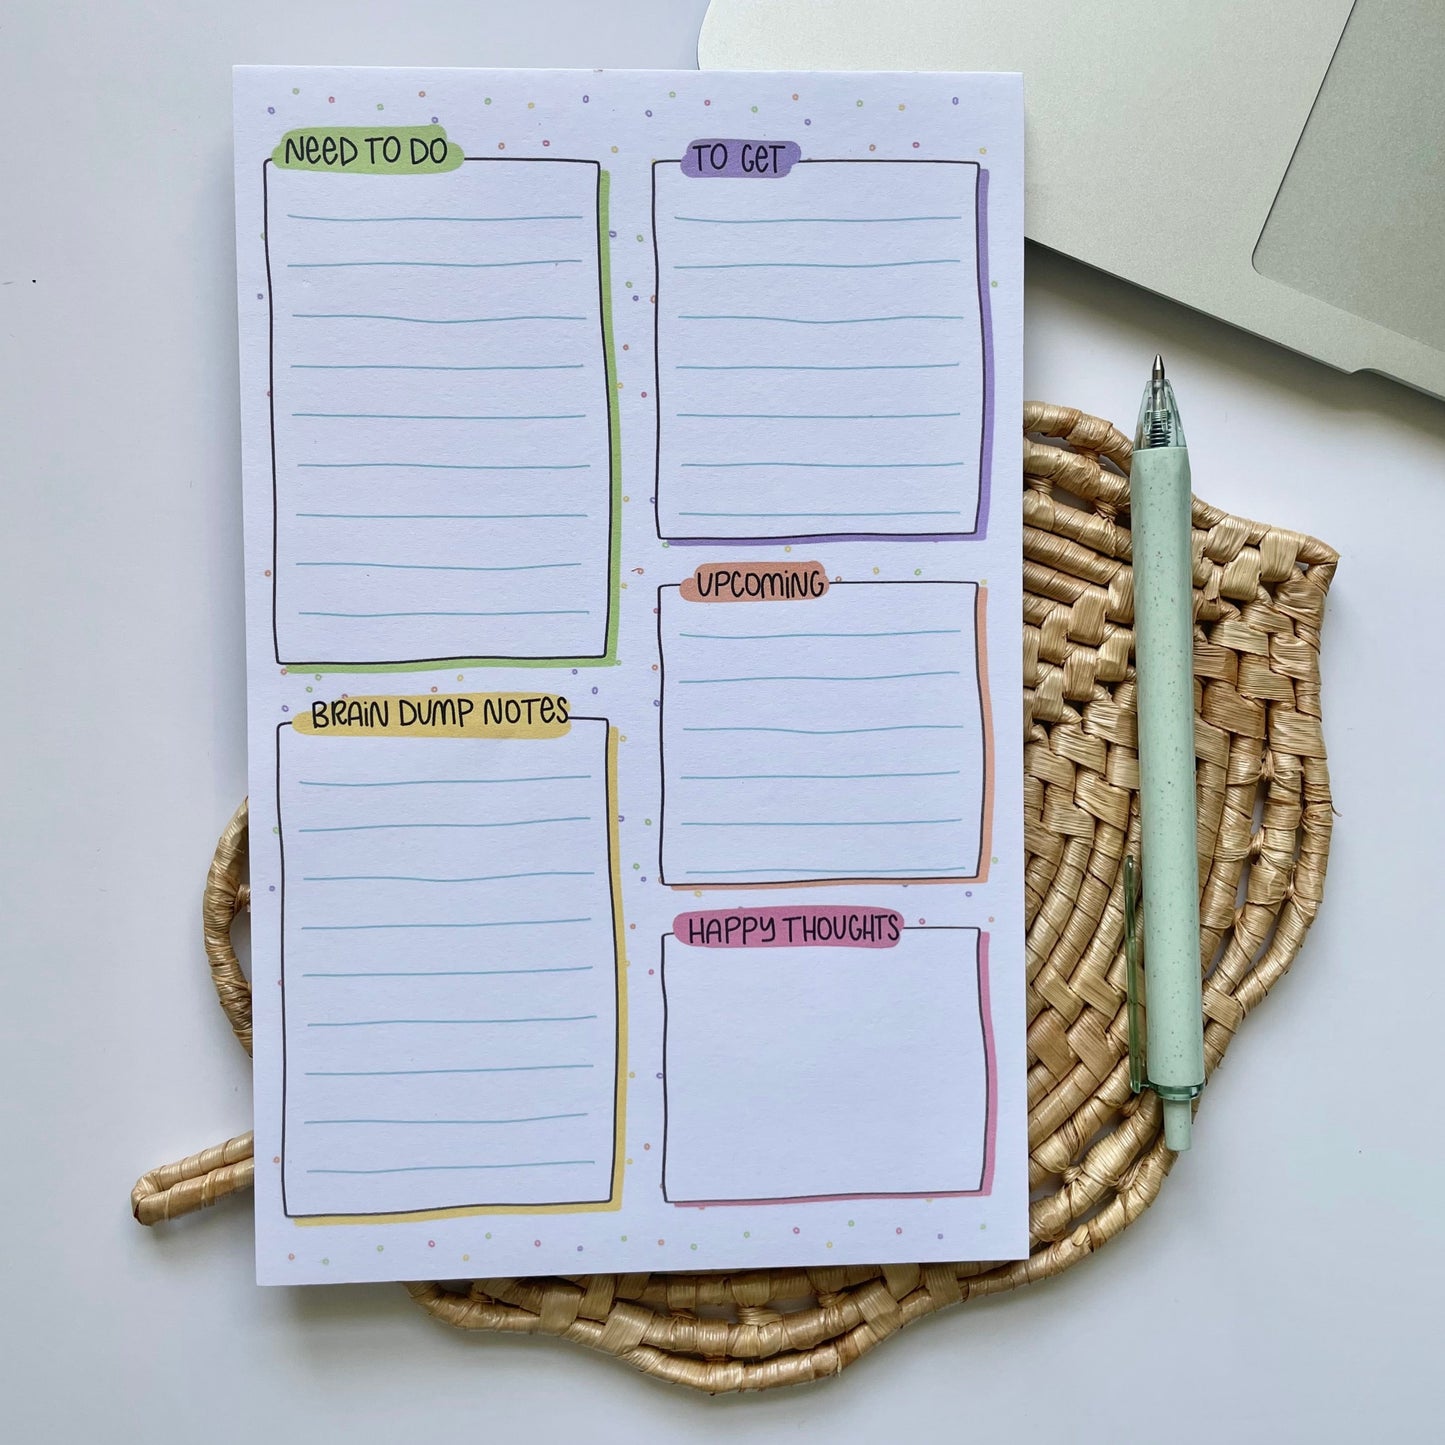 NEED TO DO
TO GET
UPCOMING
BRAIN DUMP NOTES
HAPPY THOUGHTS